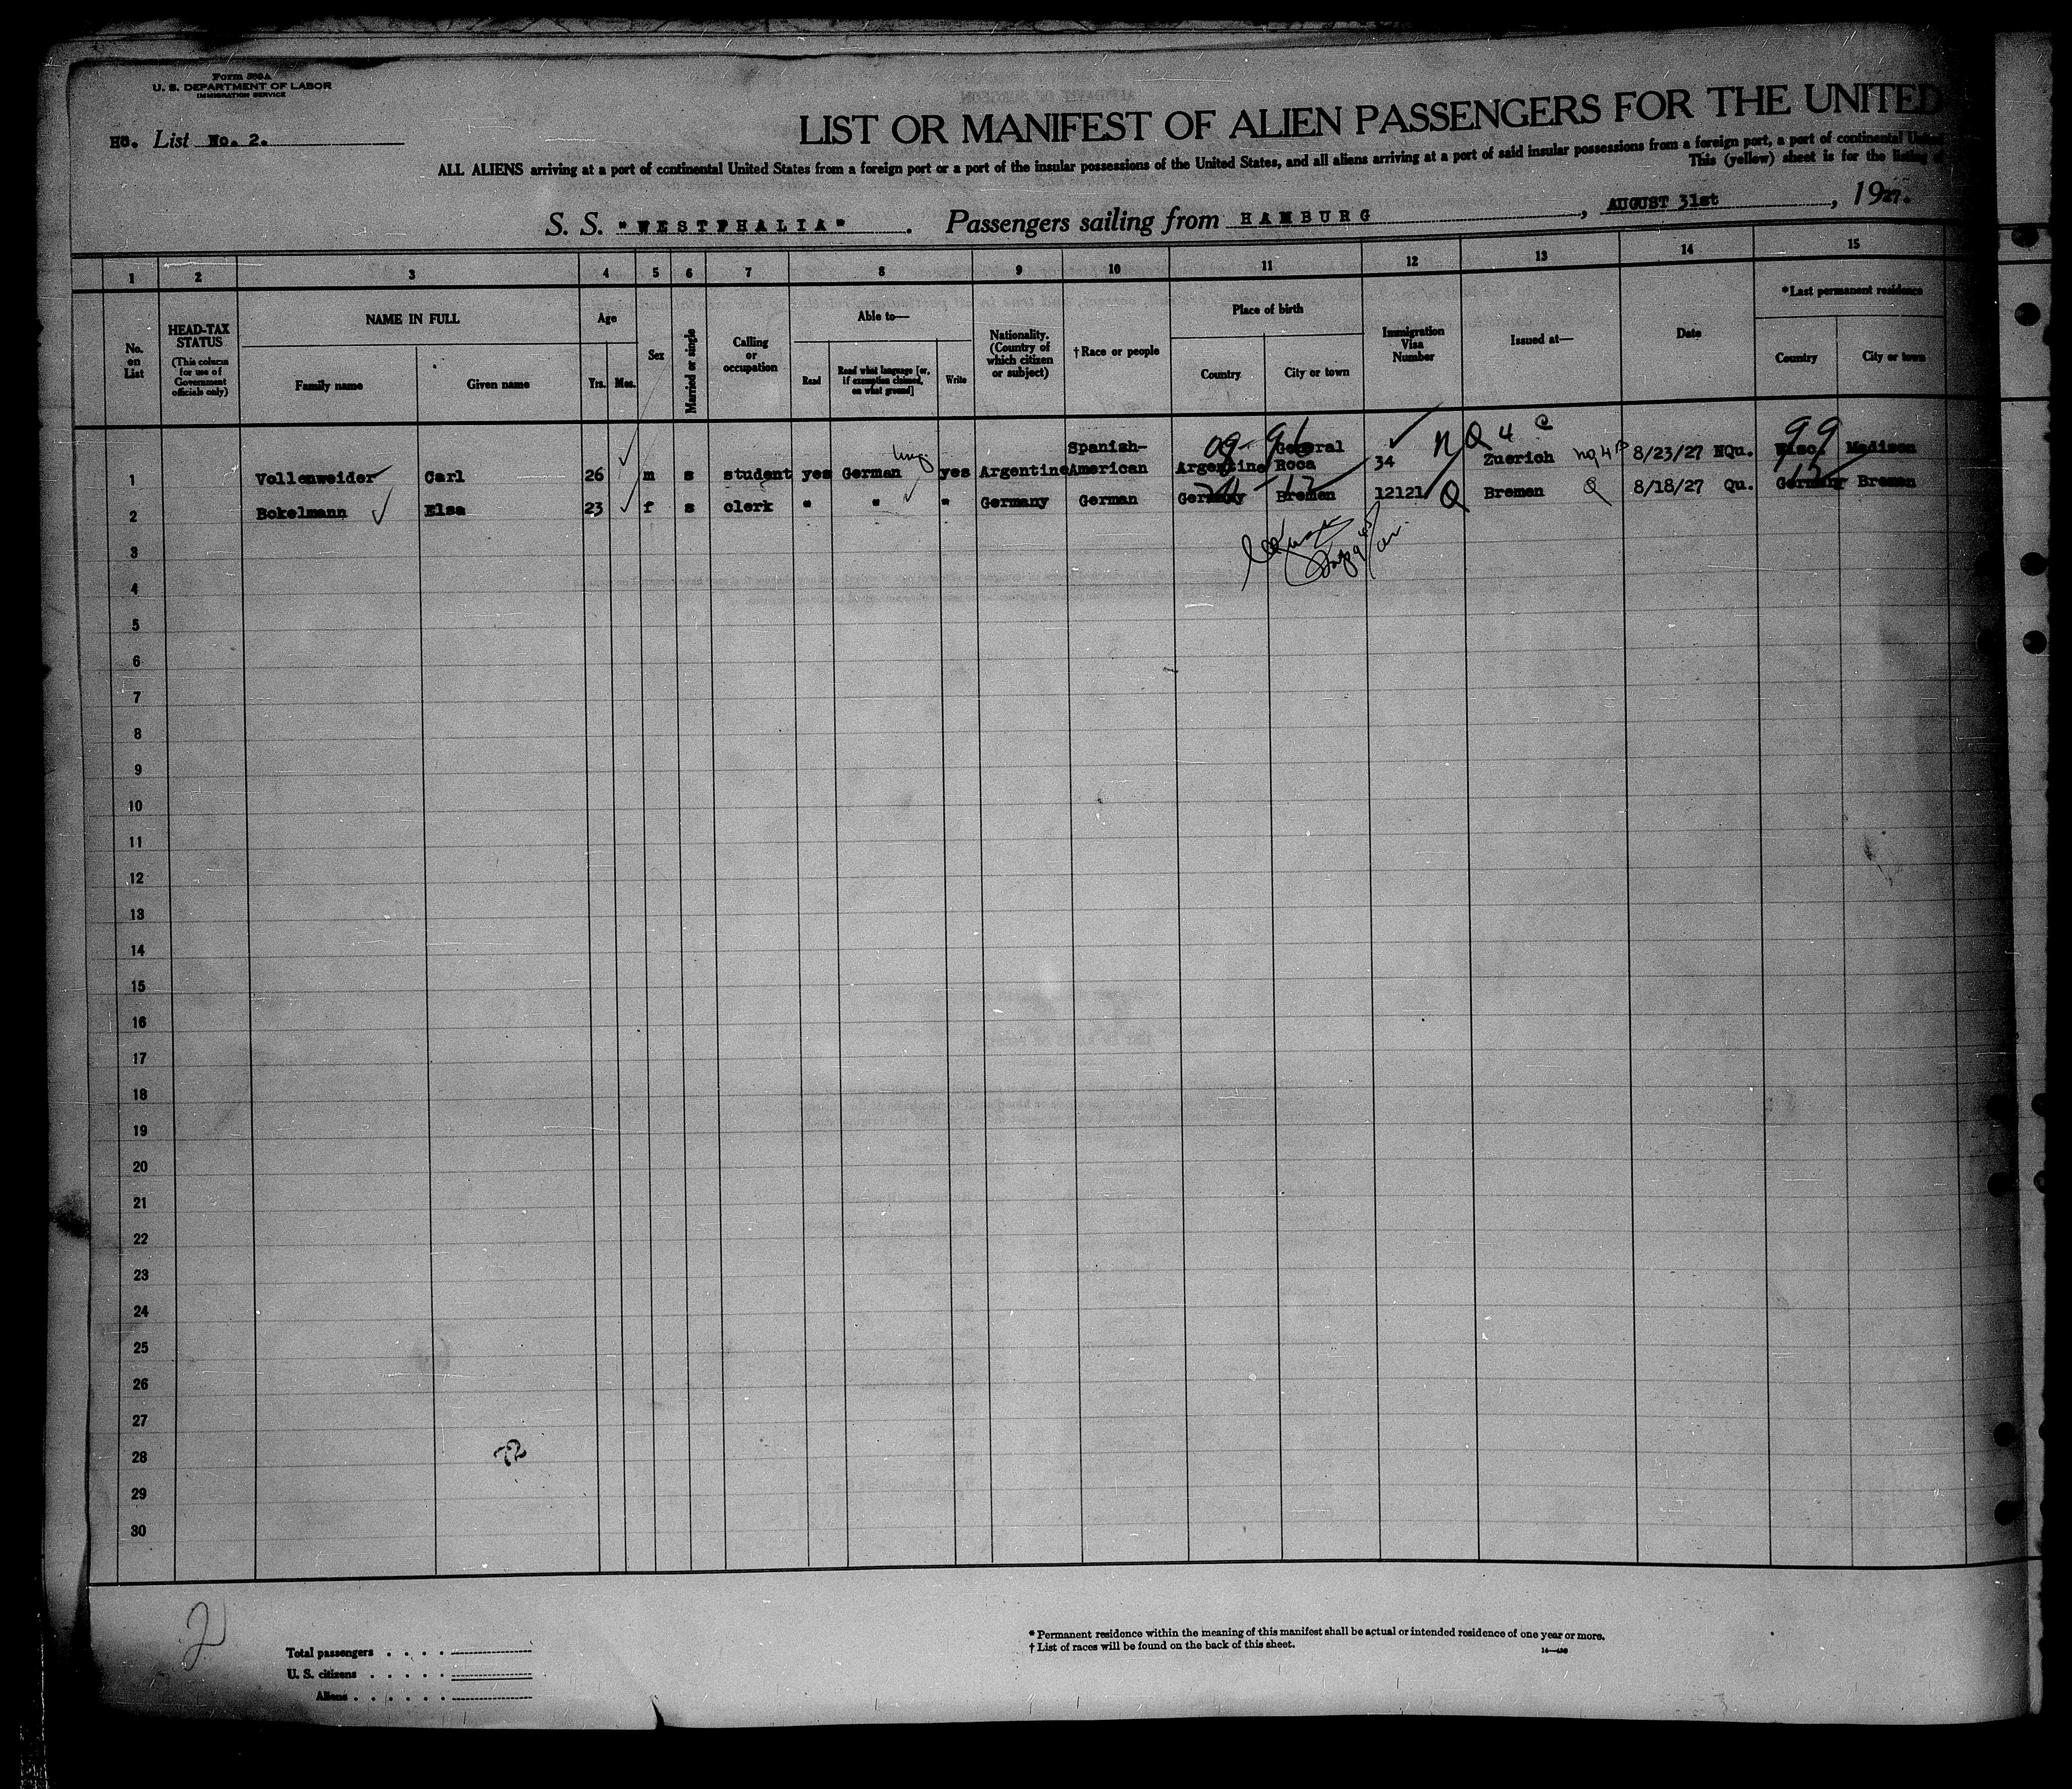 Form 500A
U. S. DEPARTMENT OF LABOR
IMMIGRATION SERVICE
HG. List No. 2.
LIST OR MANIFEST OF ALIEN PASSENGERS FOR THE UNITED
ALL ALIENS arriving at a port of continental United States from a foreign port or a port of the insular possessions of the United States, and all aliens arriving at a port of said insular possessions from a foreign port, a port of continental United
This (yellow) sheet is for the listing of
S. S. "WESTPHALIA". Passengers sailing from HAMBURG, AUGUST 31st, 1927.
1 2 3 4 5 6 7 8 9 10 11 12 13 14 15
No. on List
HEAD-TAX STATUS (This column for use of Government officials only)
NAME IN FULL
Family name Given name
Age
Yrs. Mos.
Sex
Married or single
Calling or occupation
Able to—
Read Read what language [or, if exemption claimed, on what ground] Write
Nationality. (Country of which citizen or subject)
† Race or people
Place of birth
Country City or town
Immigration Visa Number
Issued at—
Date
* Last permanent residence
Country City or town
09-96 NQ 4 C 99
1 Vollenweider Carl 26 m s student yes German yes Argentine Spanish-American Argentine General Roca 34 Zuerich nq4P 8/23/27 NQu. Wisc. Madison
2 Bokelmann Elsa 23 f s clerk " " " Germany German Germany Bremen 12121 Q Bremen Q 8/18/27 Qu. Germany Bremen
3
4
5
6
7
8
9
10
11
12
13
14
15
16
17
18
19
20
21
22
23
24
25
26
27
28
29
30
2
Total passengers
U. S. citizens
Aliens
* Permanent residence within the meaning of this manifest shall be actual or intended residence of one year or more.
† List of races will be found on the back of this sheet.